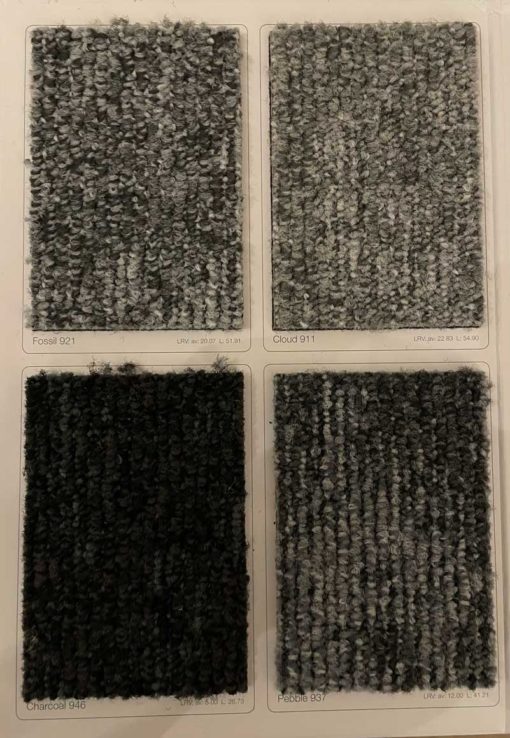 Fossil 921
LRV: av: 20.07 L: 51.91
Cloud 911
LRV: av: 22.83 L: 54.90
Charcoal 946
LRV: av: 5.00 L: 26.73
Pebble 937
LRV: av: 12.00 L: 41.21